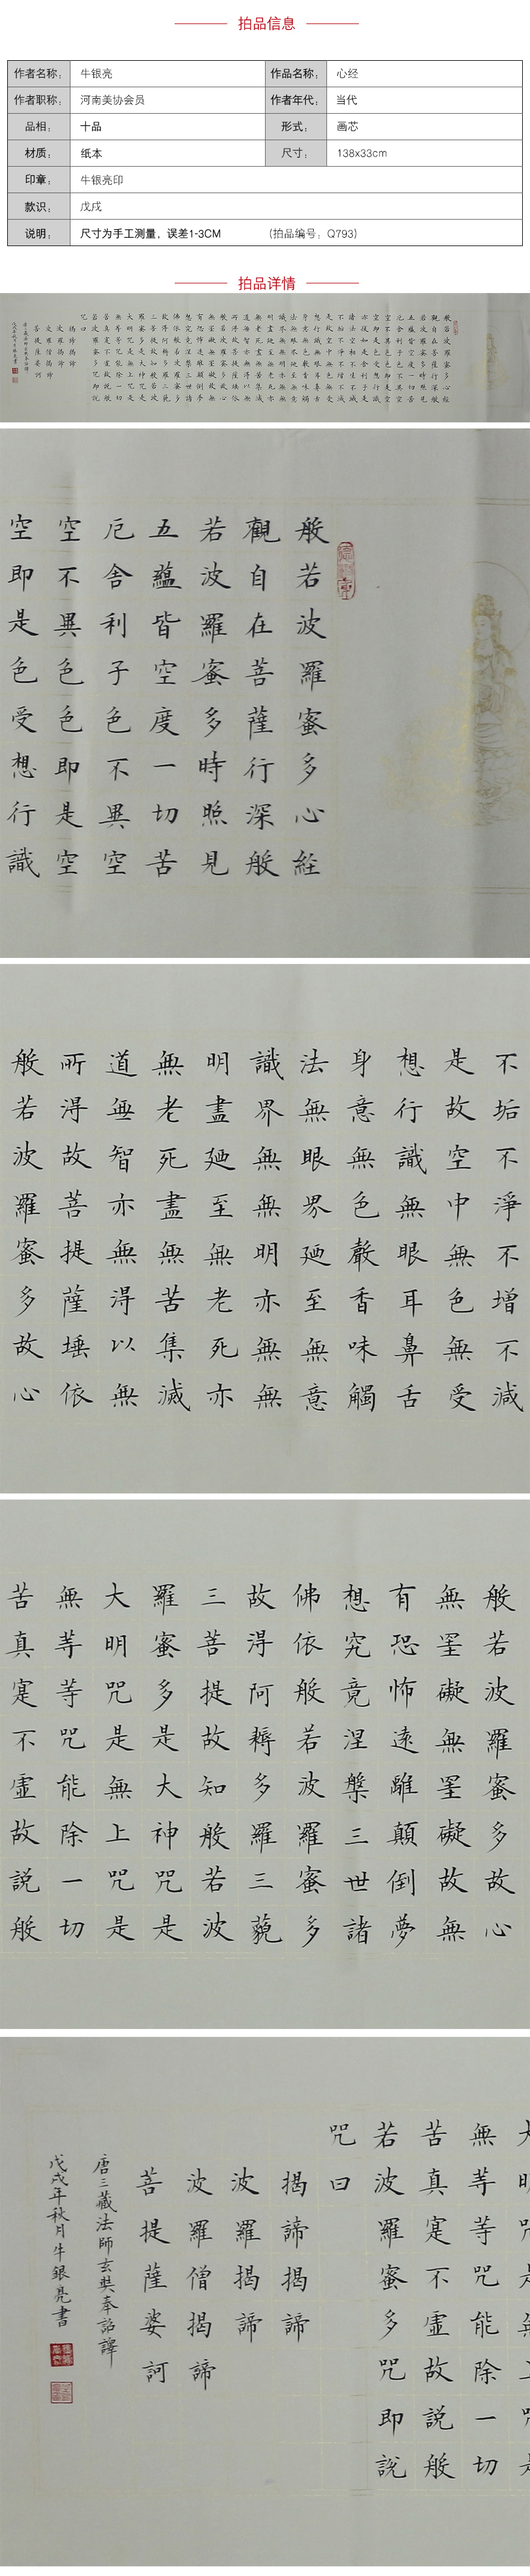 拍品信息
作者名称： 牛银亮 作品名称： 心经
作者职称： 河南美协会员 作者年代： 当代
品相： 十品 形式： 画芯
材质： 纸本 尺寸： 138x33cm
印章： 牛银亮印
款识： 戊戌
说明： 尺寸为手工测量，误差1-3CM （拍品编号：Q793）
拍品详情
般若波羅蜜多心経
觀自在菩薩行深般
若波羅蜜多時照見
五蘊皆空度一切苦
厄舍利子色不異空
空不異色色即是空
空即是色受想行識
不垢不淨不增不減
是故空中無色無受
想行識無眼耳鼻舌
身意無色聲香味觸
法無眼界廼至無意
識界無無明亦無無
明盡廼至無老死亦
無老死盡無苦集滅
道無智亦無淂以無
所淂故菩提薩埵依
般若波羅蜜多故心
般若波羅蜜多故心
無罣礙無罣礙故無
有恐怖遠離顛倒夢
想究竟涅槃三世諸
佛依般若波羅蜜多
故淂阿耨多羅三藐
三菩提故知般若波
羅蜜多是大神咒是
大明咒是無上咒是
無等等咒能除一切
苦真寔不虛故說般
無等等咒能除一切
苦真寔不虛故說般
若波羅蜜多咒即說
咒曰
揭諦揭諦
波羅揭諦
波羅僧揭諦
菩提薩婆訶
唐三藏法師玄奘奉詔譯
戊戌年秋月牛銀亮書